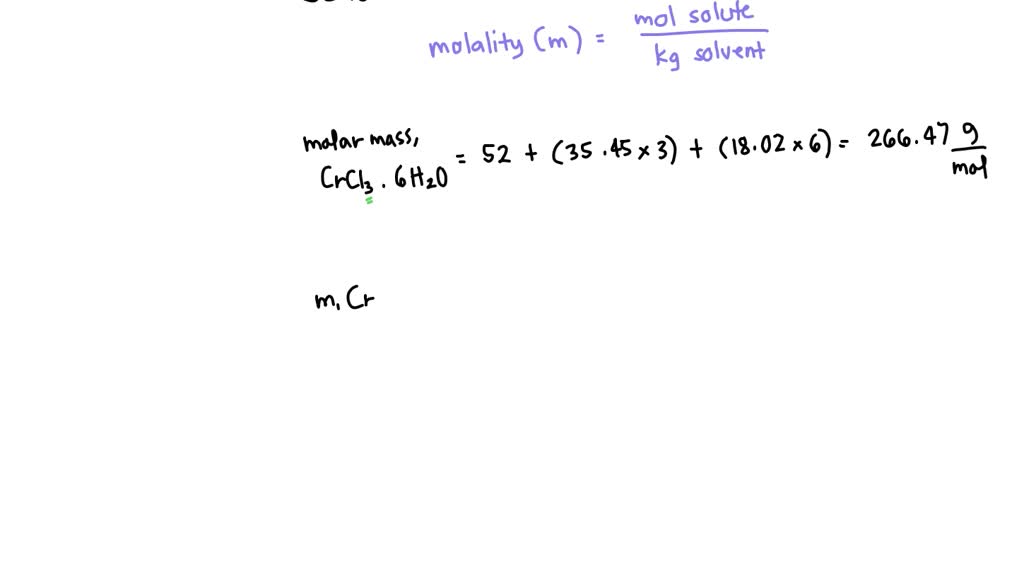 molality (m) = mol solute / kg solvent
molar mass,
CrCl₃ . 6H₂O = 52 + (35.45 × 3) + (18.02 × 6) = 266.47 g/mol
m, Cr